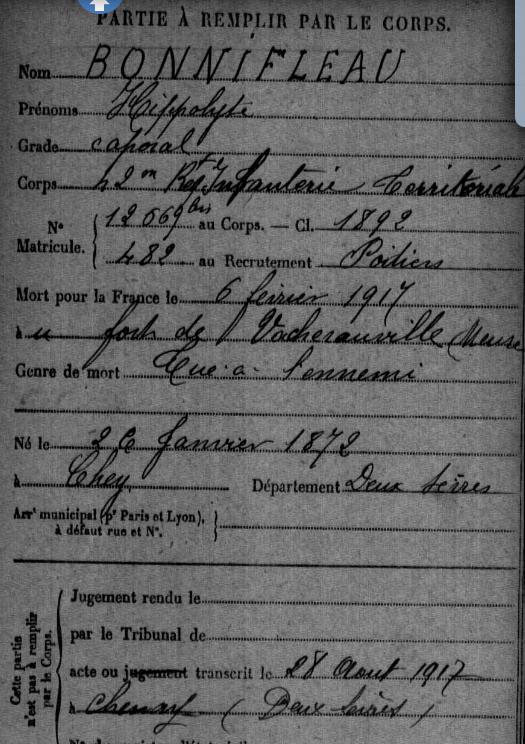 PARTIE À REMPLIR PAR LE CORPS.
Nom BONNIFLEAU
Prénoms Hippolyte
Grade caporal
Corps 42me Regt Infanterie Territoriale
No Matricule. { 12669 bis au Corps. — Cl. 1892
482 au Recrutement Poitiers
Mort pour la France le 6 février 1917
à u fort de Vacherauville Meuse
Genre de mort Tué à l'ennemi
Né le 26 Janvier 1872
à Chey Département Deux Sèvres
Arrt municipal (pr Paris et Lyon),
à défaut rue et No.
Cette partie n'est pas à remplir par le Corps.
Jugement rendu le
par le Tribunal de
acte ou jugement transcrit le 28 Aout 1917
à Chenay (Deux Sèvres)